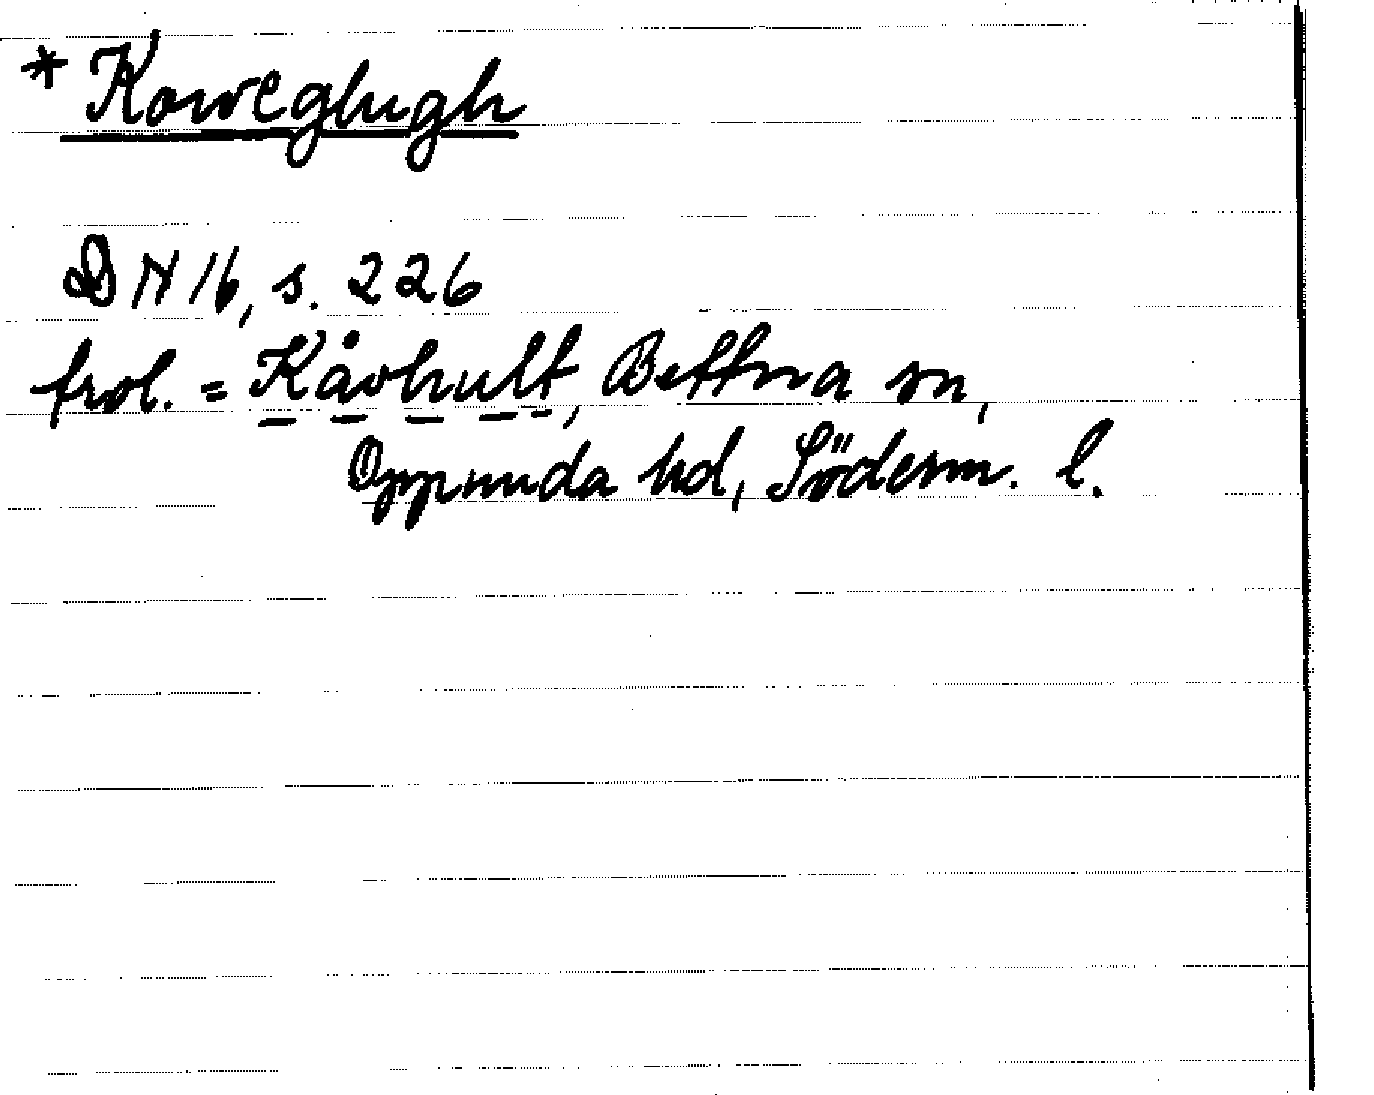 * Koweghugh
DN 16, s. 226
trol. = Kåvhult, Bettna sn,
Oppunda hd, Söderm. l.